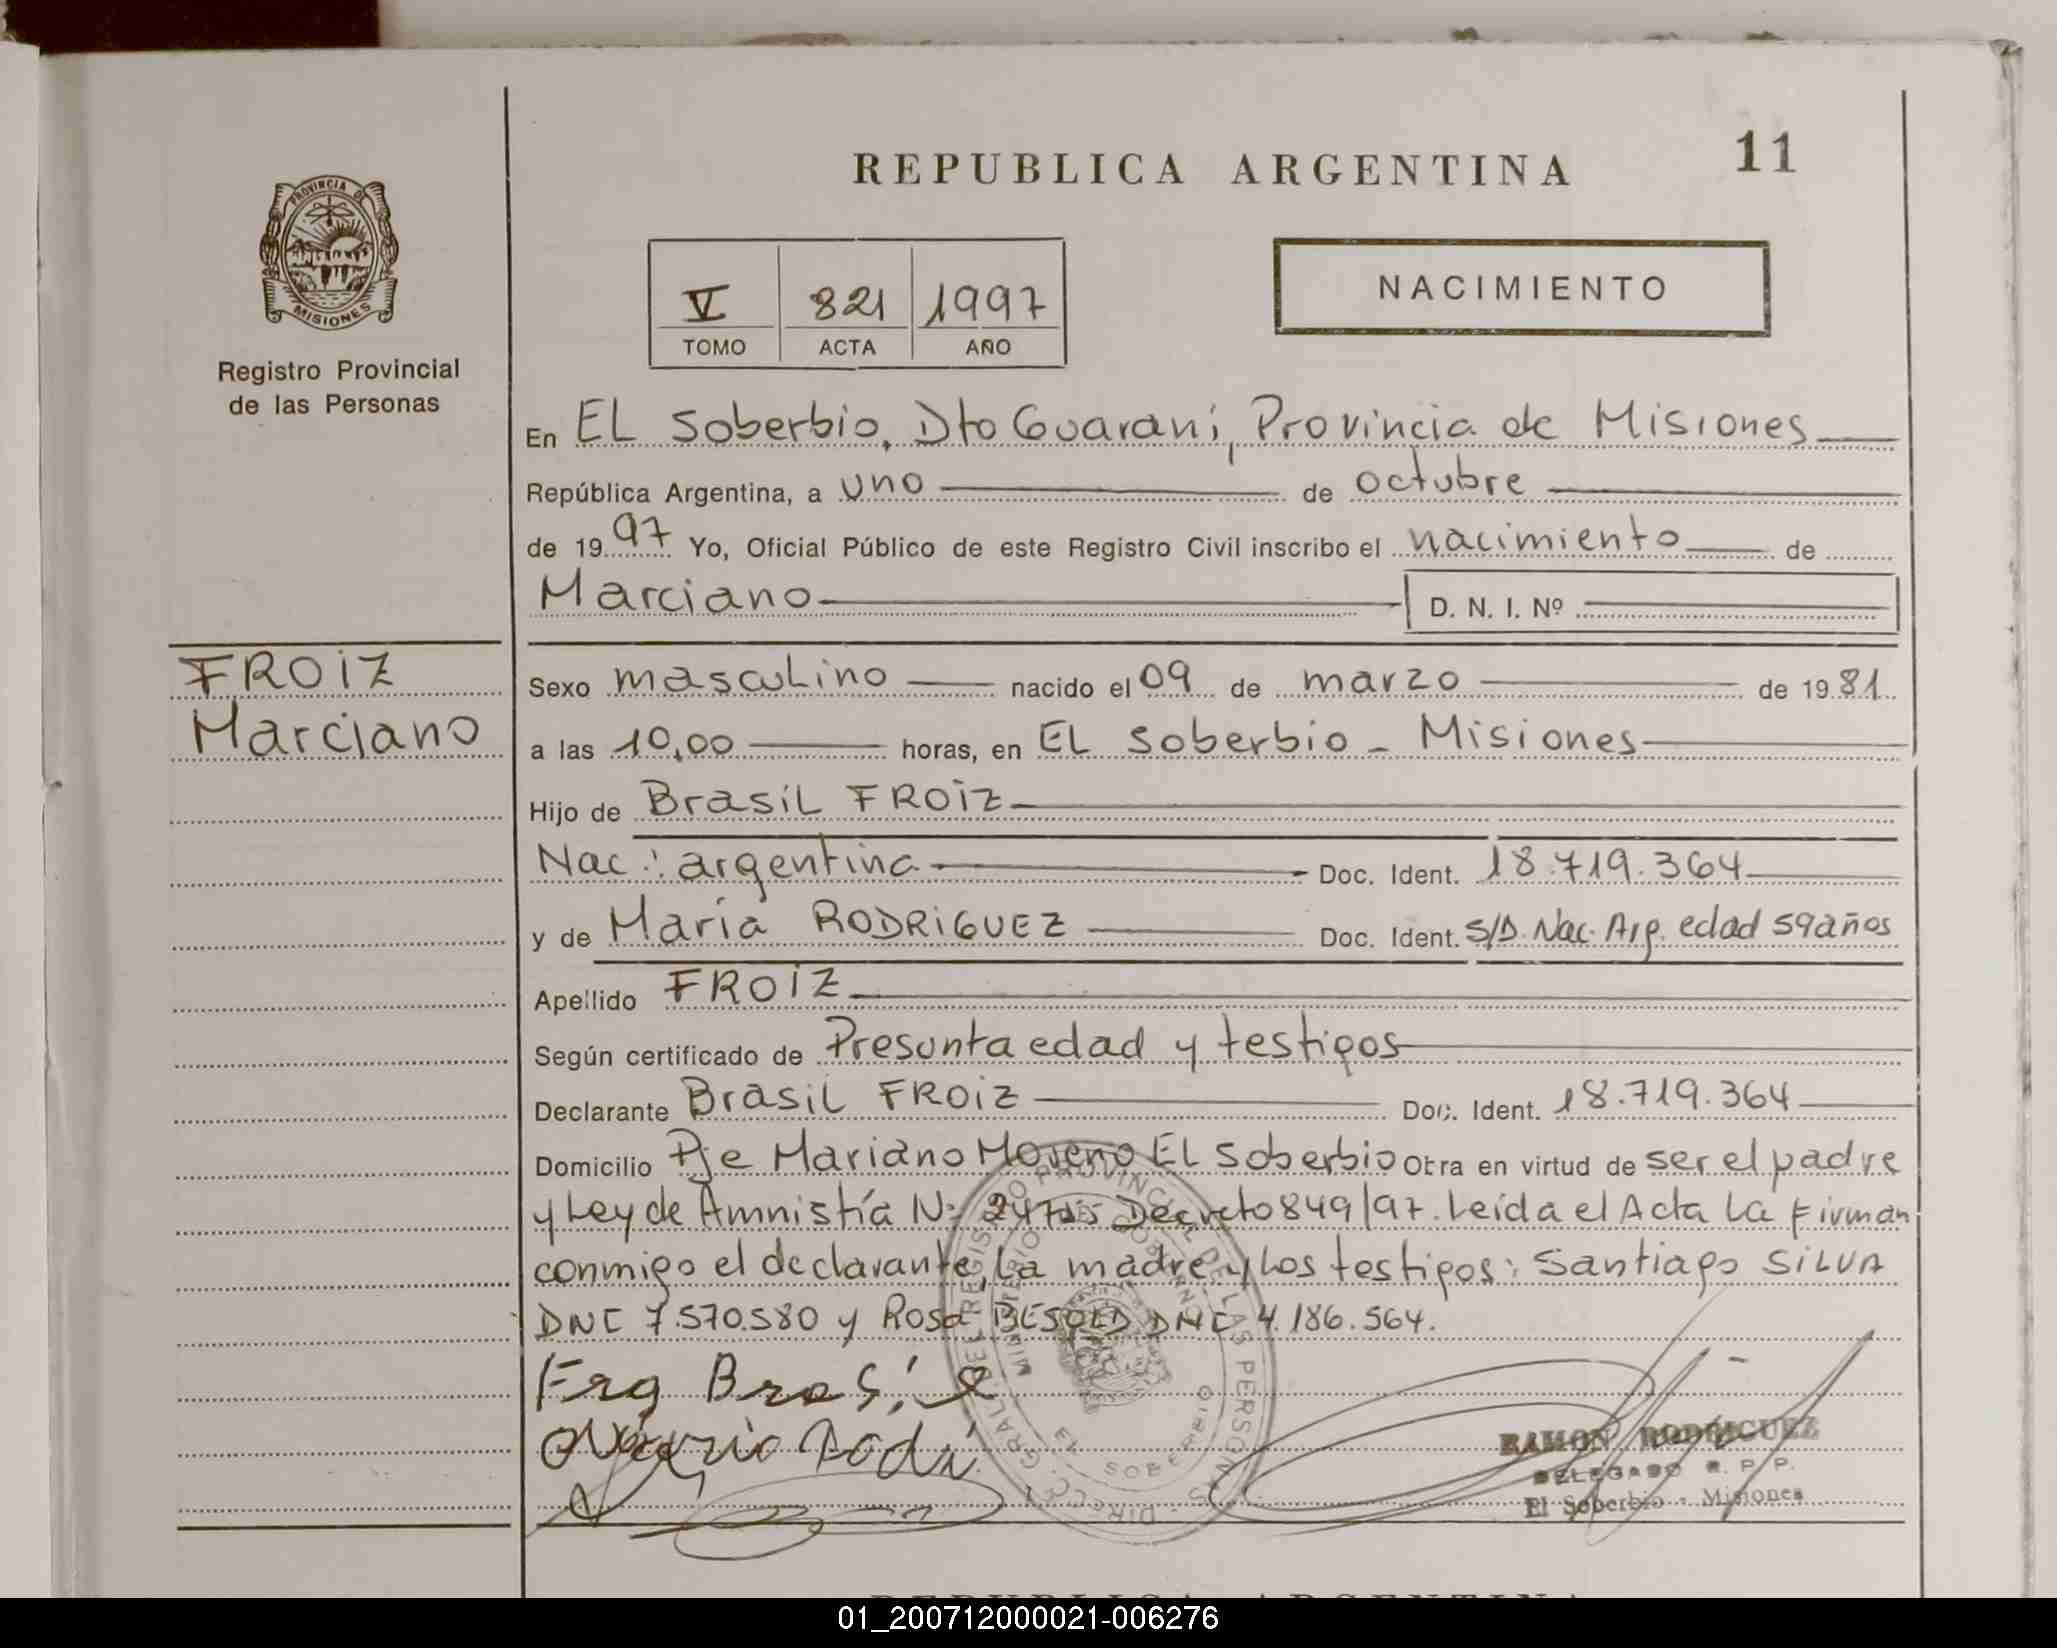 REPUBLICA ARGENTINA
11
PROVINCIA DE
MISIONES
Registro Provincial
de las Personas
V 821 1997
TOMO ACTA AÑO
NACIMIENTO
En EL Soberbio, Dto Guaraní, Provincia de Misiones
República Argentina, a uno de octubre
de 1997 Yo, Oficial Público de este Registro Civil inscribo el nacimiento de
Marciano D. N. I. Nº
FROIZ
Marciano
Sexo masculino nacido el 09 de marzo de 1981
a las 10,00 horas, en EL Soberbio - Misiones
Hijo de Brasil FROIZ
Nac: argentina Doc. Ident. 18.719.364
y de María RODRIGUEZ Doc. Ident. S/D. Nac. Arg. edad 59 años
Apellido FROIZ
Según certificado de Presunta edad y testigos
Declarante Brasil FROIZ Doc. Ident. 18.719.364
Domicilio Pje Mariano Moreno EL Soberbio Obra en virtud de ser el padre
y Ley de Amnistía Nº Decreto 849/97. Leída el Acta La firman
conmigo el declarante, La madre y Los testigos: Santiago SILVA
DNI 7.570.580 y Rosa DNI 4.186.564.
Brasil
RAMON RODRIGUEZ
DELEGADO R. P. P.
El Soberbio - Misiones
DIRECC. GRAL. DEL REGISTRO PROVINCIAL DE LAS PERSONAS
MINISTERIO DE GOBIERNO
EL SOBERBIO
REPUBLICA ARGENTINA
01_200712000021-006276